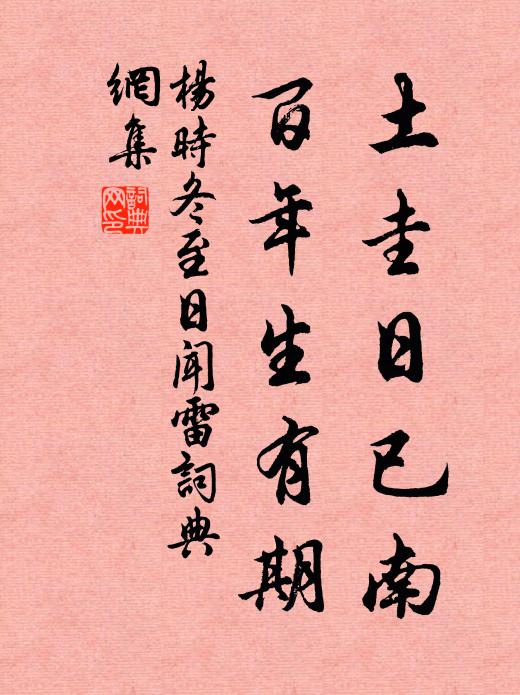 土圭日已南
百年生有期
楊時冬至日聞雷詞典
網集
詞典
网印